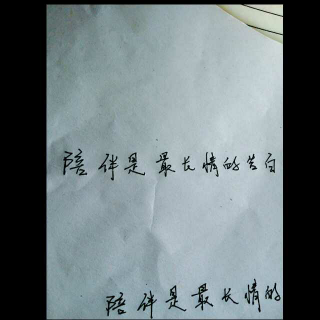 陪伴是最长情的告白
陪伴是最长情的